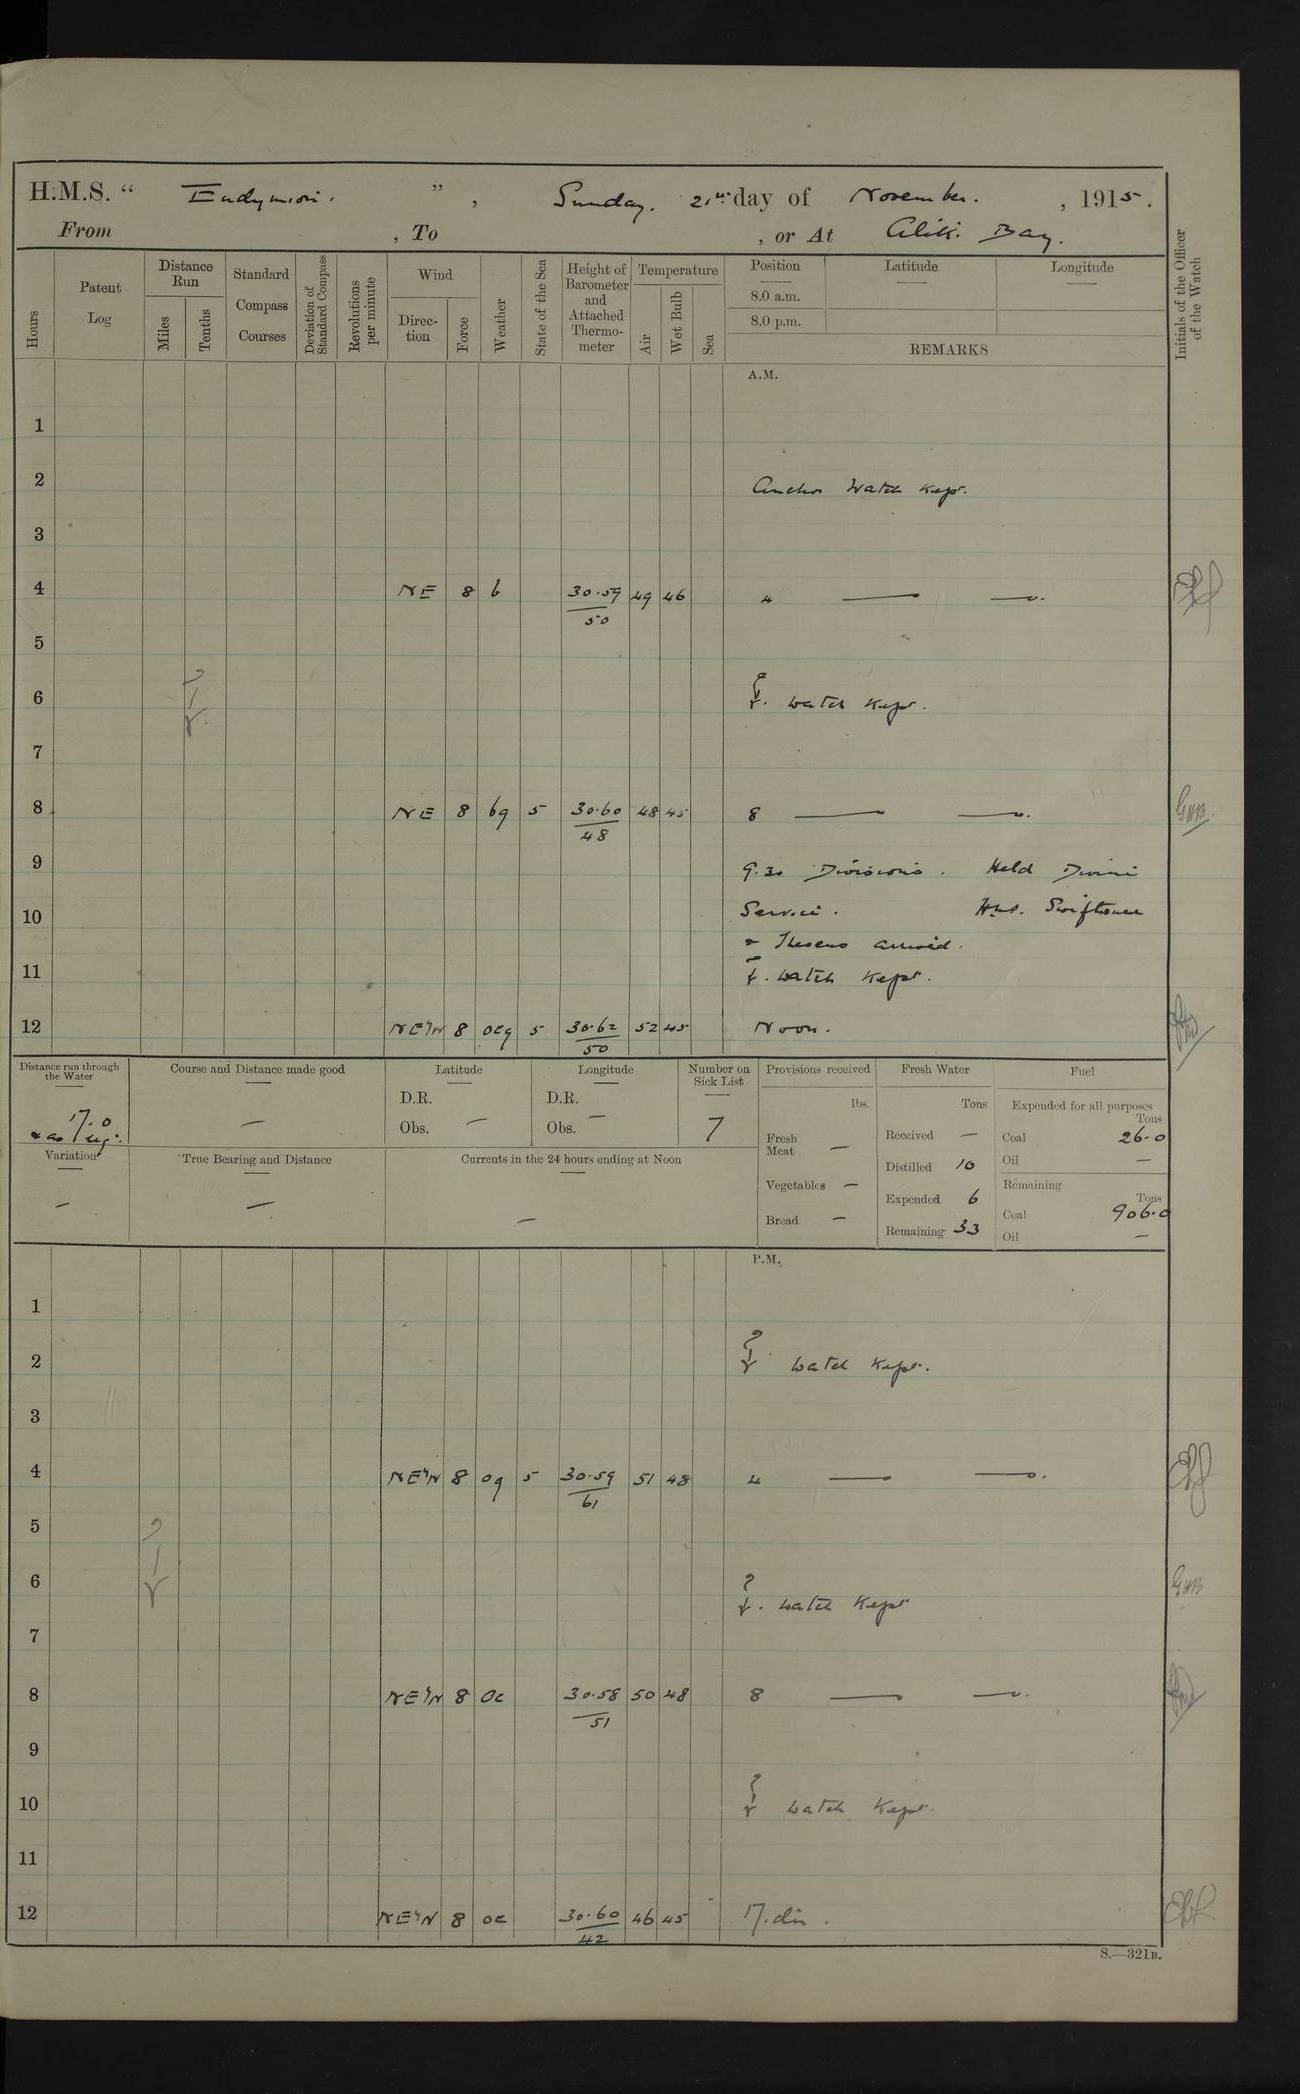 H.M.S. “ Endymion. ” , Sunday. 21st day of November. , 1915.
From , To , or At Aliki Bay.
Hours
Patent Log
Distance Run
Miles
Tenths
Standard Compass Courses
Deviation of Standard Compass
Revolutions per minute
Wind
Direc-tion
Force
Weather
State of the Sea
Height of Barometer and Attached Thermo-meter
Temperature
Air
Wet Bulb
Sea
Position Latitude Longitude
8.0 a.m.
8.0 p.m.
REMARKS
Initials of the Officer of the Watch
A.M.
1
2 Anchor Watch Kept.
3
4 NE 8 b 30.59 49 46 4 — —.
50
5
6 watch Kept.
7
8 NE 8 bq 5 30.60 48 45 8 — —. GHB
48
9 9.30 Divisions. Held Divine
10 Service. H.M.S. Swiftsure
& Theseus arrived.
11 watch Kept.
12 NE'ly N 8 ocq 5 30.62 52 45 Noon.
50
Distance run through the Water
Course and Distance made good
—
Latitude
D.R.
Obs. —
Longitude
D.R. —
Obs.
Number on Sick List
7
Variation
—
True Bearing and Distance
—
Currents in the 24 hours ending at Noon
—
Provisions received
lbs.
Fresh Meat —
Vegetables —
Bread —
Fresh Water
Tons
Received —
Distilled 10
Expended 6
Remaining 33
Fuel
Expended for all purposes
Tons
Coal 26.0
Oil —
Remaining
Tons
Coal 906.0
Oil —
P.M.
1
2 watch Kept.
3
4 NE'ly N 8 oq 5 30.59 51 48 4 — —.
61
5
6 watch Kept GHB
7
8 NE'ly N 8 oc 30.58 50 48 8 — —.
51
9
10 watch Kept.
11
12 NE'ly N 8 oc 30.60 46 45
42
S.—321B.